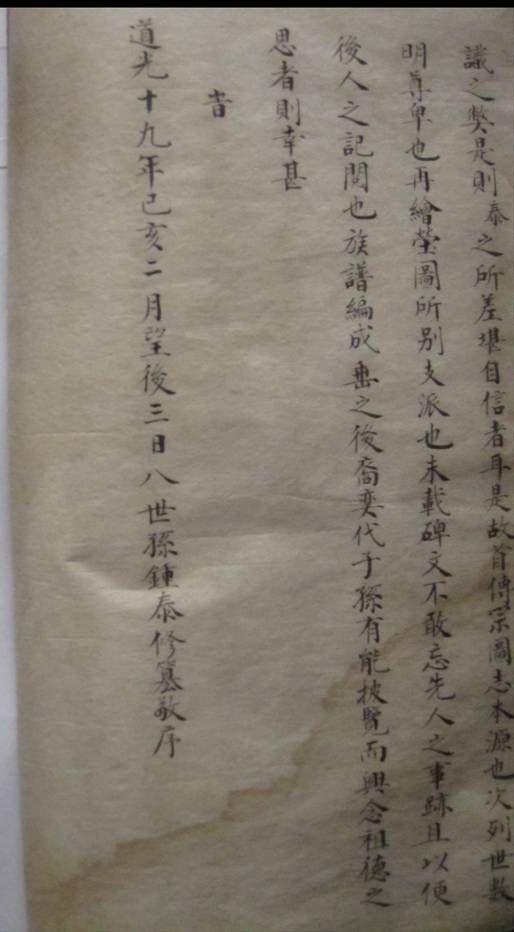 譏之獘是則泰之所差堪自信者耳是故首傳宗圖志本源也次列世數
明尊卑也再繪塋圖所别支派也末載碑文不敢忘先人之事跡且以便
後人之記閱也族譜編成垂之後裔奕代子孫有能披覽而興念祖德之
思者則幸甚
旹
道光十九年己亥二月望後三日八世孫鍾泰修纂敬序